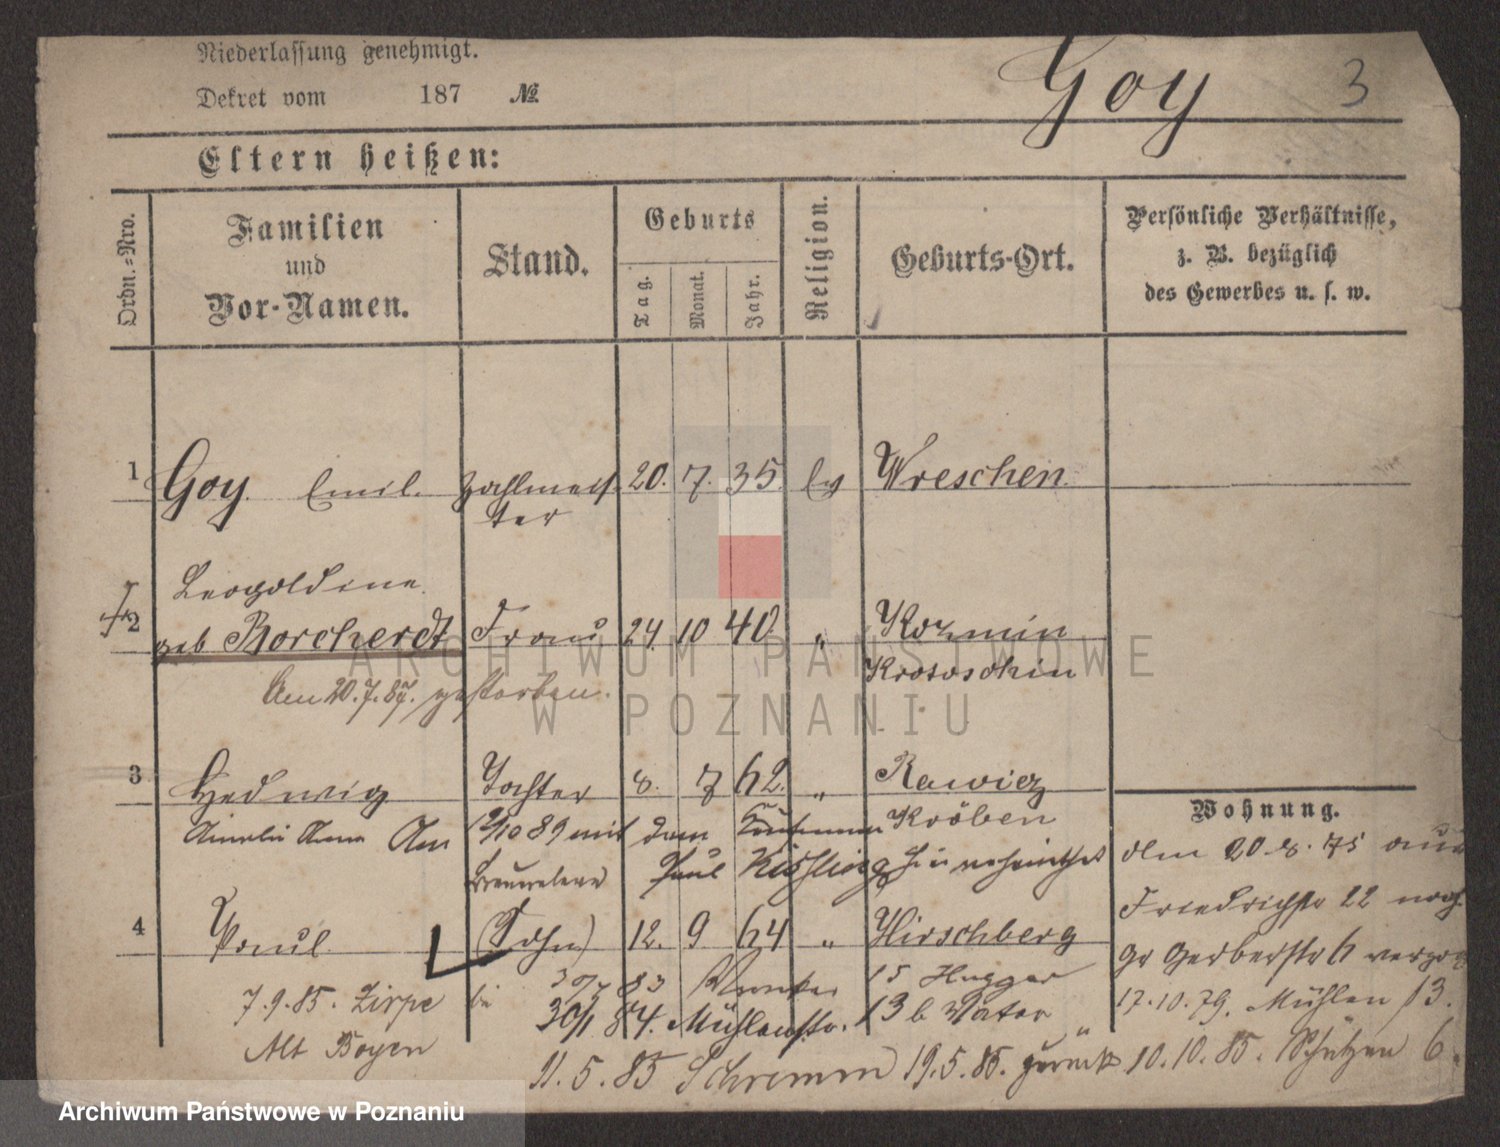 Niederlassung genehmigt.
Dekret vom 187 №
Goy 3
Eltern heißen:
Ordn.-Nro.
Familien
und
Vor-Namen.
Stand.
Geburts
Tag.
Monat.
Jahr.
Religion.
Geburts-Ort.
Persönliche Verhältnisse,
z. B. bezüglich
des Gewerbes u. s. w.
1 Goy Emil. Zahlmeis 20. 7. 35. Ev Wreschen
ter
Leopoldine
2 geb Borcherdt Frau 24. 10 40. " Kozmin
Krotoschin
Am 20.7.87. gestorben.
3 Hedwig Tochter 8. 7 62. " Rawicz
Kröben
Wohnung.
Amalie Anna Am 12/10 89 mit dem Kaufmann
Paul Kissling hier verheirathet
den 20.8.75 aus
Friedrichstr 22 nach
gr Gerberstr 6 verzog
4 Paul (Sohn) 12. 9 64 " Hirschberg
7.9.85. Zirpe
Alt Boyen
83 15 Hugger
30/1 84. Mühlenstr. 13 b Vater "
17.10.79. Mühlen 13.
11.5.85 Schrimm 19.5.85. zurück 10.10.85. Schützen 6.
ARCHIWUM PAŃSTWOWE
W POZNANIU
Archiwum Państwowe w Poznaniu